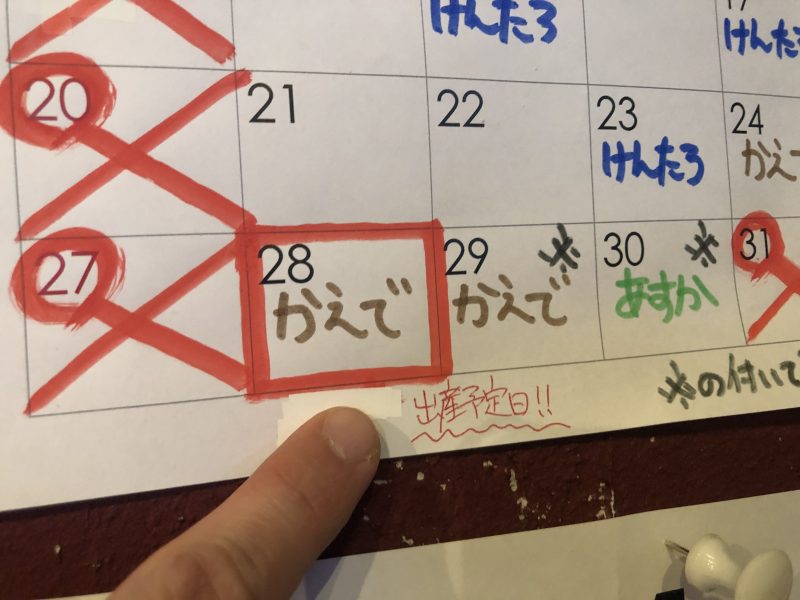 けんたろ
けんたろ
20
21
22
23
けんたろ
24
かえで
27
28
かえで
29 ※
かえで
30 ※
あすか
31
出産予定日!!
※の付いて